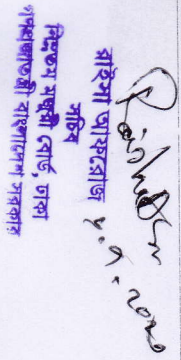 রাইসা আফরোজ
সচিব
নিম্নতম মজুরী বোর্ড, ঢাকা
গণপ্রজাতন্ত্রী বাংলাদেশ সরকার